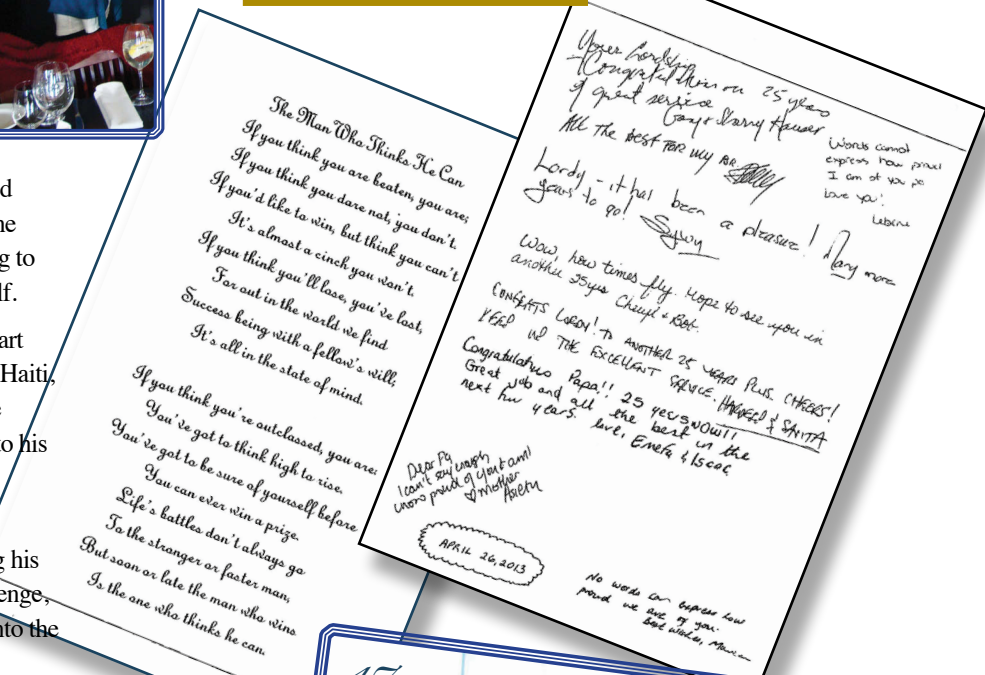 d
ne
g to
lf.
art
Haiti,
to his
g his
enge,
nto the
The Man Who Thinks He Can
If you think you are beaten, you are;
If you think you dare not, you don't.
If you'd like to win, but think you can't
It's almost a cinch you won't.
If you think you'll lose, you've lost,
For out in the world we find
Success being with a fellow's will;
It's all in the state of mind.
If you think you're outclassed, you are:
You've got to think high to rise.
You've got to be sure of yourself before
You can ever win a prize.
Life's battles don't always go
To the stronger or faster man,
But soon or late the man who wins
Is the one who thinks he can.
Your Lordship
Congratulations on 25 years
of great service
Harry Hauser
ALL THE BEST FOR MY BR.
Words cannot
express how proud
I am of you pa
love you!
Lordy - it has been a pleasure! Many more
years to go!
Wow, how times fly. Hope to see you in
another 25yrs Cheryl & Bob.
CONGRATS LORDY! TO ANOTHER 25 YEARS PLUS. CHEERS!
KEEP UP THE EXCELLENT SERVICE. & SANITA
Congratulations Papa!! 25 years WOW!!
Great job and all the best in the
next few years. love, Emefa & Isaac
Dear Pa
I can't say enough
how proud of you I am!
Mother
APRIL 26, 2013
No words can express how
proud we are of you.
Best wishes,